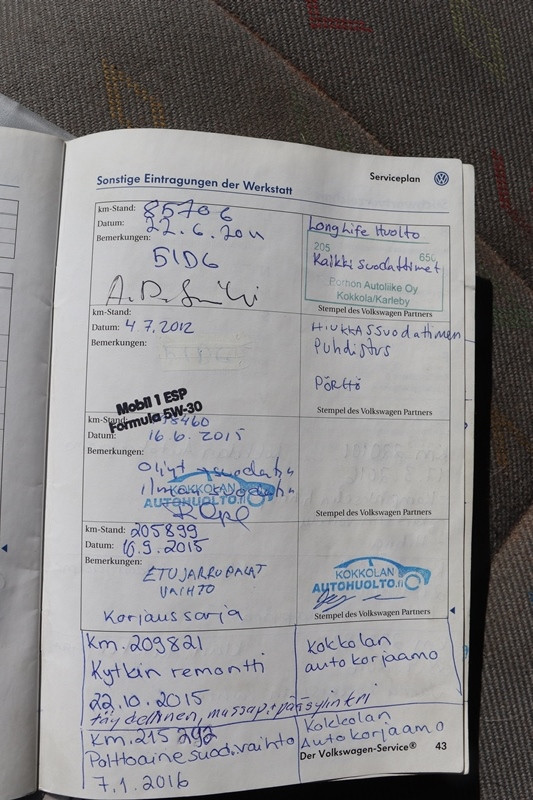 Serviceplan
Sonstige Eintragungen der Werkstatt
km-Stand: 85706
Datum: 22.6.2011
Bemerkungen:
51D6
LongLife Huolto
205 650
Kaikki suodattimet
Porhon Autoliike Oy
Kokkola/Karleby
Stempel des Volkswagen Partners
km-Stand:
Datum: 4.7.2012
Bemerkungen:
HIUKKASSUODATIMEN
PUHDISTUS
PÖRHÖ
Stempel des Volkswagen Partners
Mobil 1 ESP
Formula 5W-30
km-Stand: 8460
Datum: 16.6.2015
Bemerkungen:
Öljyt + suodatin
ilman suodatin
KOKKOLAN
AUTOHUOLTO.fi
Stempel des Volkswagen Partners
km-Stand: 205899
Datum: 16.9.2015
Bemerkungen:
ETUJARRUPALAT
VAIHTO
Korjaussarja
KOKKOLAN
AUTOHUOLTO.fi
Stempel des Volkswagen Partners
km. 209821
Kytkin remontti
22.10.2015
täydellinen, massap.+pääsylintri
Kokkolan
autokorjaamo
km. 215292
Polttoaine suod.vaihto
7.1.2016
Kokkolan
Autokorjaamo
Der Volkswagen-Service® 43